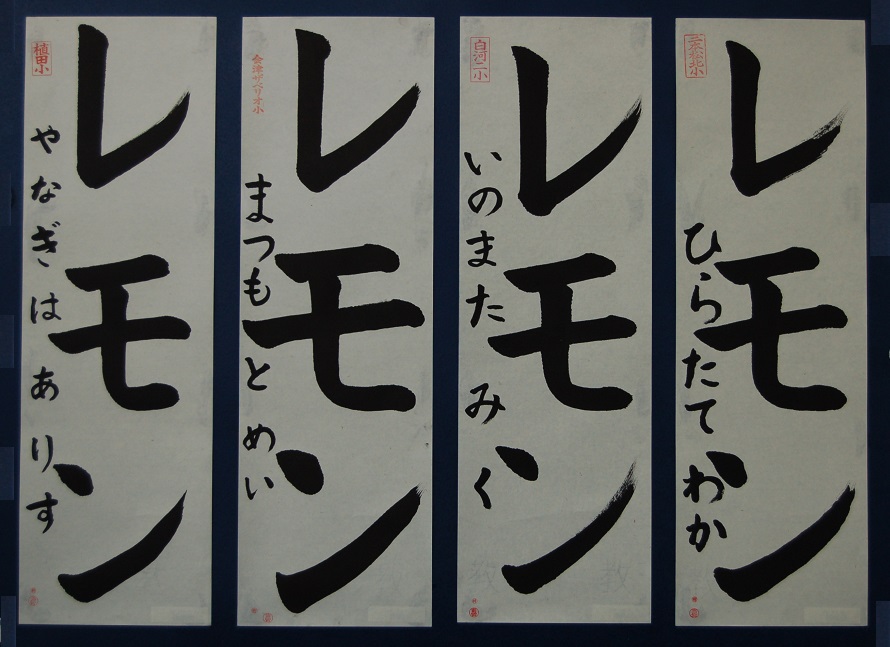 レモン
ひらたてわか
白河二小
レモン
いのまた みく
会津ザベリオ小
レモン
まつもと めい
植田小
レモン
やなぎは ありす